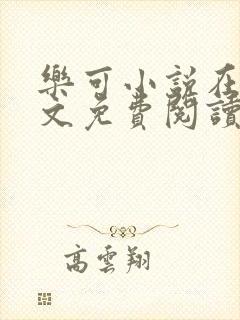 樂可小說在
文免費閱讀
高雲翔